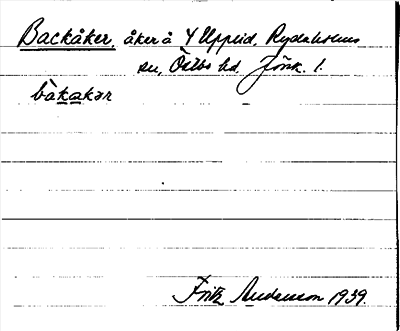 Backåker, åker å Y Upplid, Rydaholms
sn, Östbo hd, Jönk. l.
bàkakər
Fritz Andersson 1939.